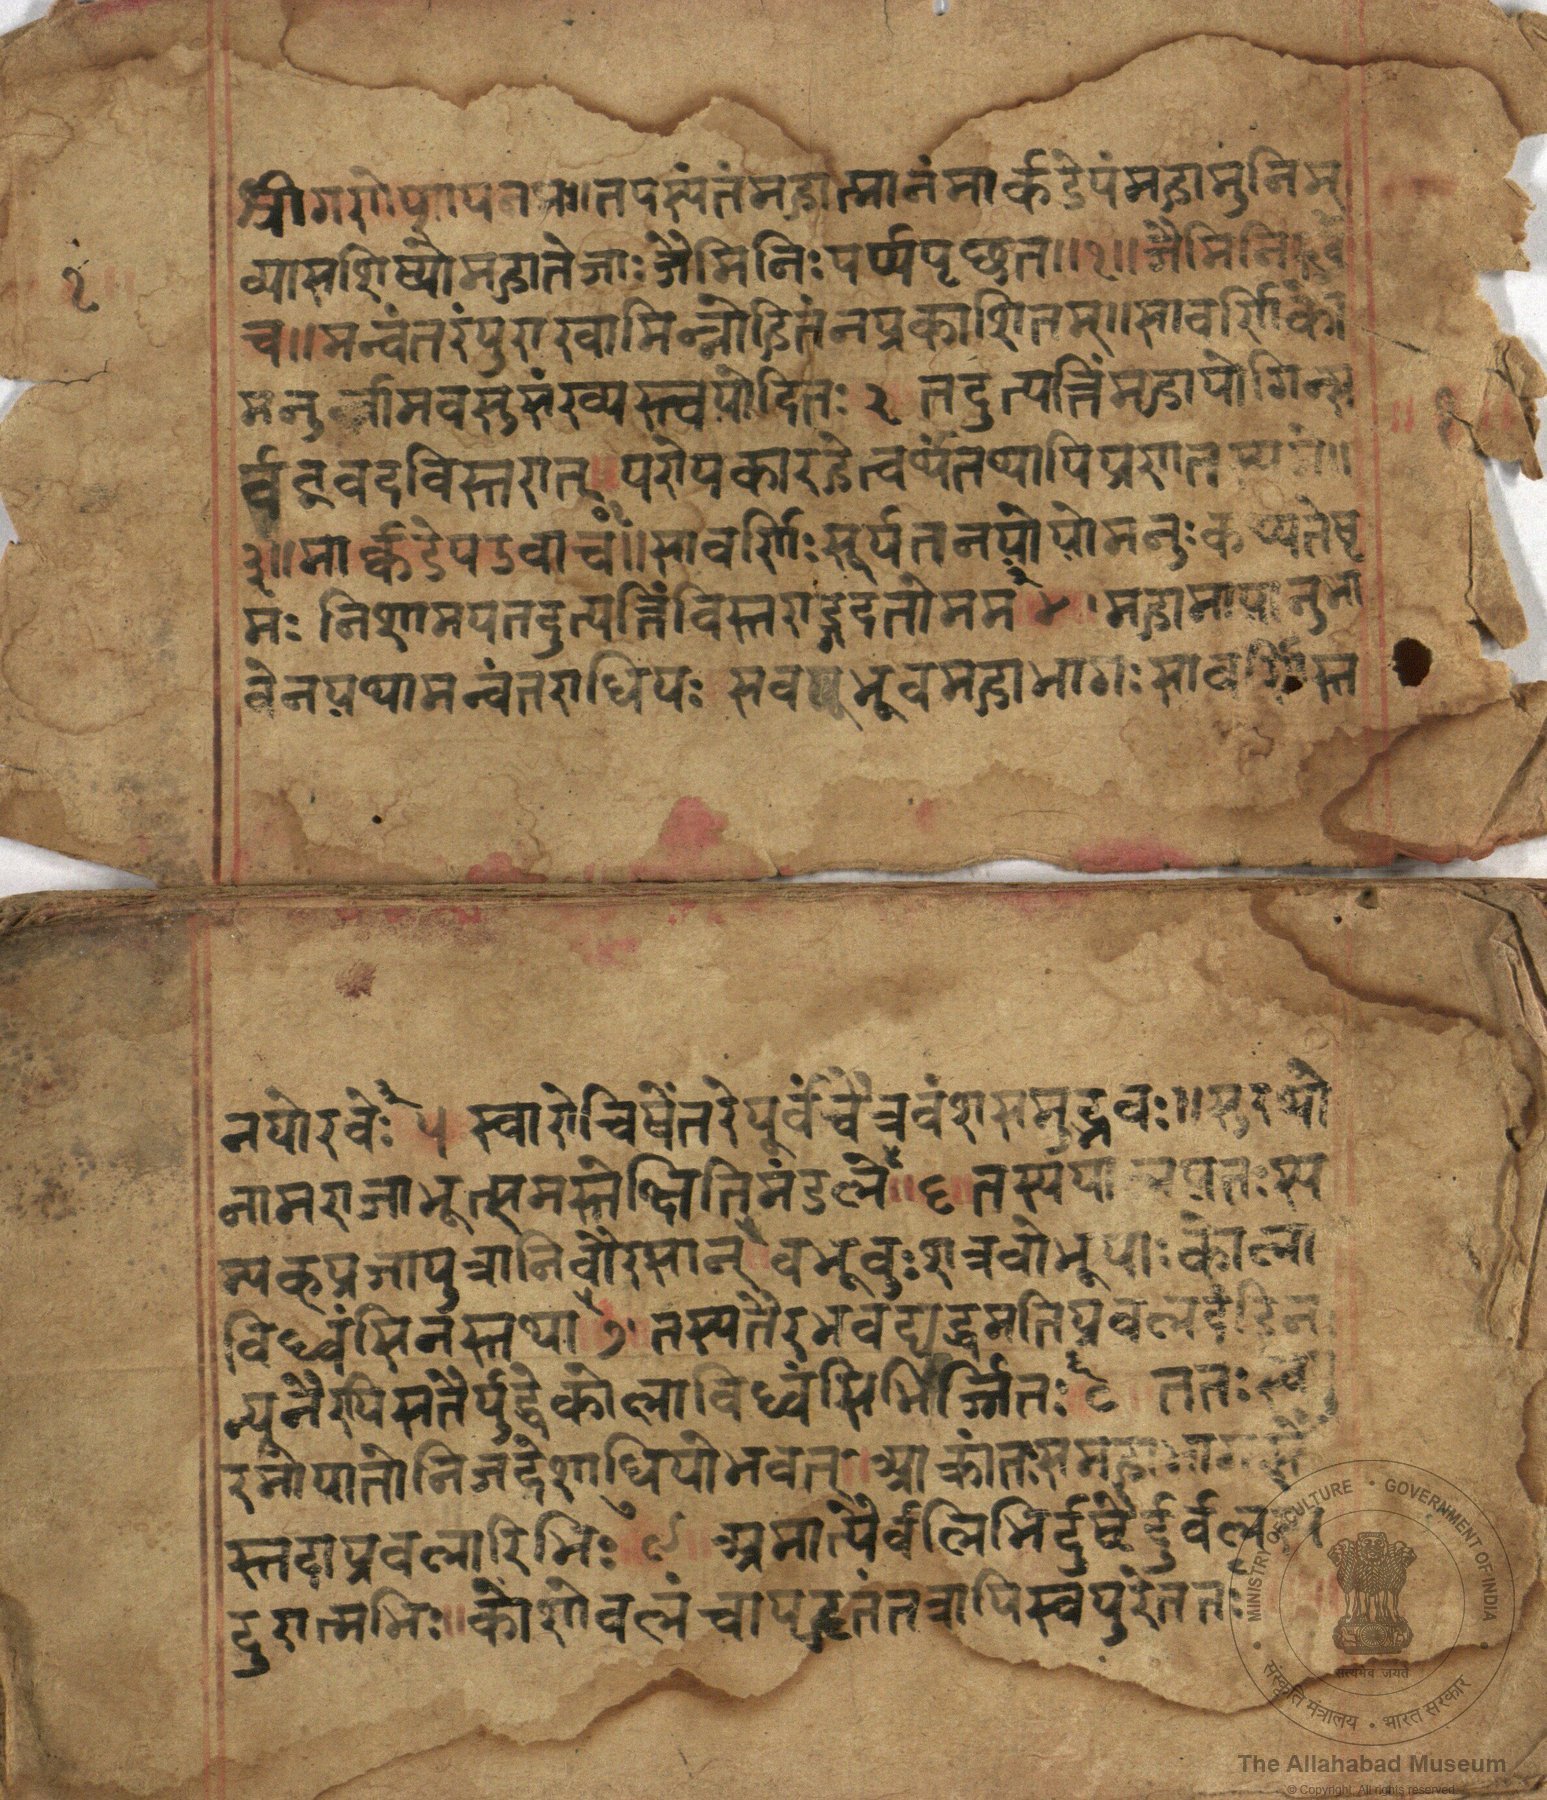 श्रीगणेशाय नमः॥ तपस्यंतं महात्मानं मार्कंडेयं महामुनिम्
व्यासशिष्यो महातेजाः जैमिनिः पर्य्यपृच्छत॥१॥ जैमिनिरुवा
च॥ मन्वंतरं पुरा स्वामिन्नोदितं न प्रकाशितम्॥ सावर्णिको
मनुर्न्नाम वसुसंख्यस्त्वयोदितः २ तदुत्पत्तिं महायोगिन्स
र्वं वद विस्तरात् परोपकारहेत्वर्थं तथापि प्रणतस्य
३॥ मार्कंडेय उवाच॥ सावर्णिः सूर्यतनयो यो मनुः कथ्यतेष्ट
मः निशामय तदुत्पत्तिं विस्तराद्गदतो मम ४ महामायानुभा
वेन यथा मन्वंतराधिपः स वभूव महाभागः सावर्णिस्त
१
नयो रवेः ५ स्वारोचिषेंतरे पूर्वं चैत्रवंशसमुद्भवः॥ सुरथो
नाम राजाभूत्समस्ते क्षितिमंडले॥ ६ तस्य पालयतः सम्य
म्यक् प्रजा पुत्रानिवौरसान् वभूवुः शत्रवो भूपाः कोला
विध्वंसिनस्तथा ७ तस्य तैरभवद्युद्धमतिप्रवलदंडिन
न्यूनैरपि स तैर्युद्धे कोलाविध्वंसिभिर्ज्जितः ८ ततः स्व
रमायातो निजदेशाधिपोभवत् आक्रांतः स महाभागस्तै
स्तदा प्रवलारिभिः ९ अमात्यैर्वलिभिर्दुष्टैर्दुर्वलस्य
दुरात्मभिः॥ कोशो वलं चापहृतं तत्रापि स्वपुरे ततः
MINISTRY OF CULTURE • GOVERNMENT OF INDIA
सत्यमेव जयते
संस्कृति मंत्रालय • भारत सरकार
The Allahabad Museum
© Copyright. All rights reserved